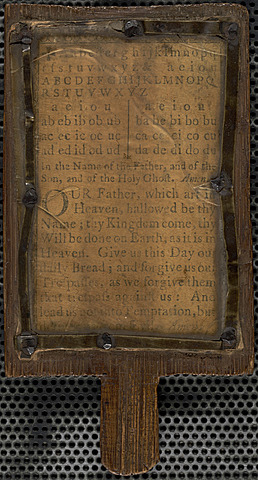 a b c d e f g h i j k l m n o p q
r s t u v w x y z & a e i o u
A B C D E F G H I J K L M N O P Q
R S T U V W X Y Z
a e i o u a e i o u
ab eb ib ob ub ba be bi bo bu
ac ec ic oc uc ca ce ci co cu
ad ed id od ud da de di do du
In the Name of the Father, and of the
Son, and of the Holy Ghost. Amen.
OUR Father, which art in
Heaven, hallowed be thy
Name; thy Kingdom come, thy
Will be done on Earth, as it is in
Heaven. Give us this Day our
daily Bread; and forgive us our
Trespasses, as we forgive them
that trespass against us: And
lead us not into Temptation, but